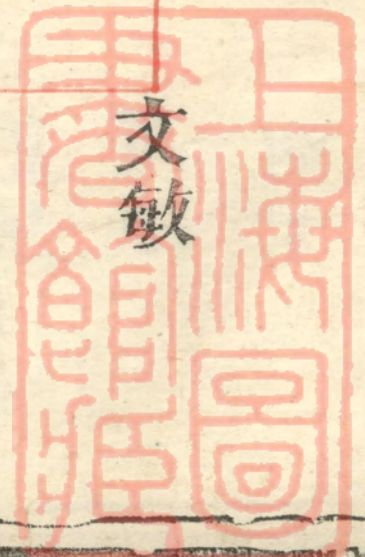 文敏
上海圖
書館藏